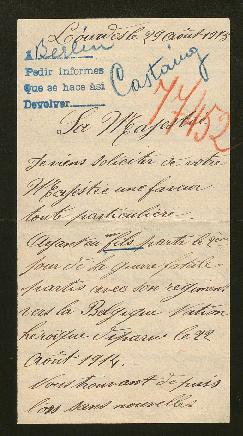 le 29 Août 1915
A Berlin
Pedir informes
Que se hace así
Devolver
Castaing
77452
Sa Majesté
Je viens solliciter de votre
Majestée une faveur
toute particulière
Ayant un fils partit le
jour de la guerre fatale
partis avec son régiment
vers la Belgique Nation
héroïque disparus le 22
Août 1914.
Nous trouvant depuis
lors sans nouvelles